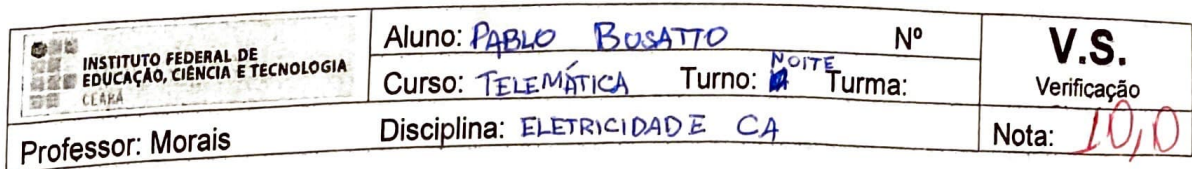 INSTITUTO FEDERAL DE
EDUCAÇÃO, CIÊNCIA E TECNOLOGIA
CEARÁ
Aluno: PABLO BUSATTO Nº
Curso: TELEMÁTICA Turno: NOITE Turma:
V.S.
Verificação
Professor: Morais
Disciplina: ELETRICIDADE CA
Nota: 10,0